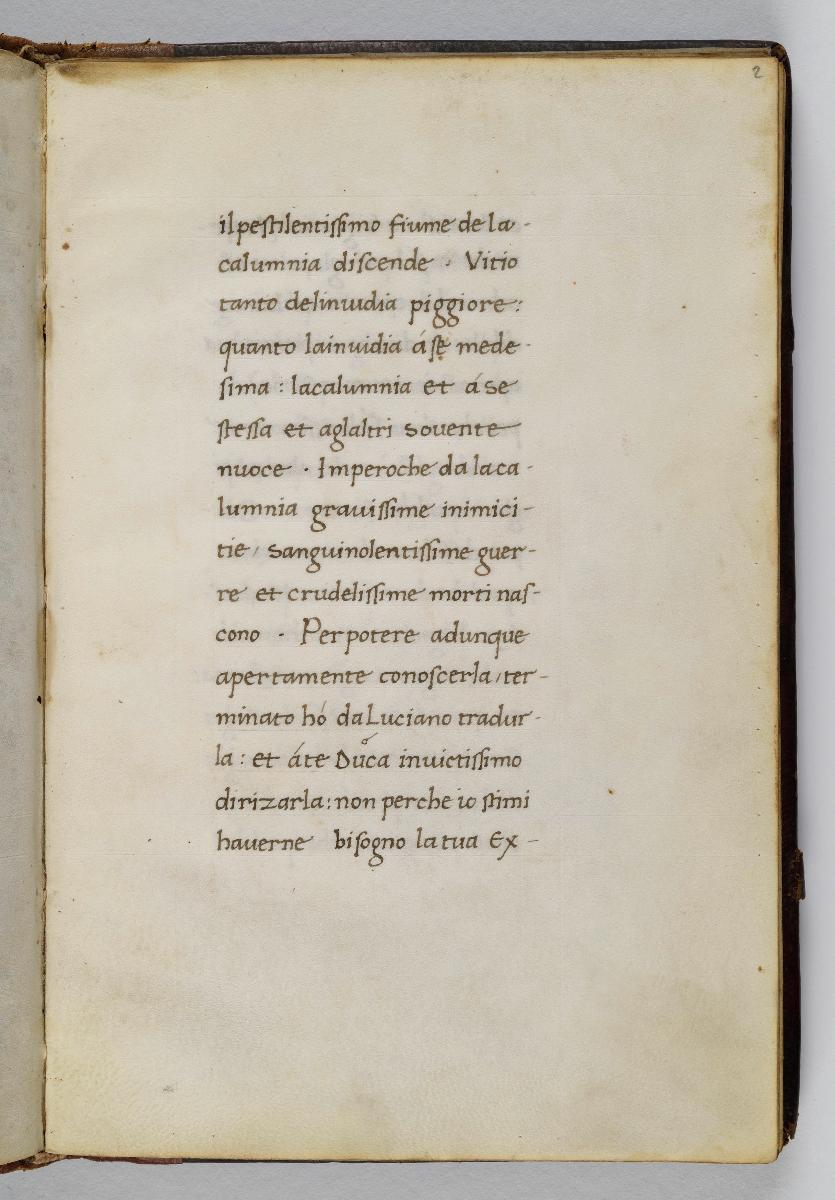 2
il pestilentissimo fiume de la-
calumnia discende · Vitio
tanto delinuidia piggiore:
quanto lainuidia á se mede-
sima : lacalumnia et á se
stessa et aglaltri souente
nuoce · Imperoche da la ca-
lumnia grauissime inimici-
tie / sanguinolentissime guer-
re et crudelissime morti nas-
cono · Per potere adunque
apertamente conoscerla / ter-
minato hó da Luciano tradur-
la : et á te Duca inuictissimo
dirizarla : non perche io stimi
hauerne bisogno la tua Ex-